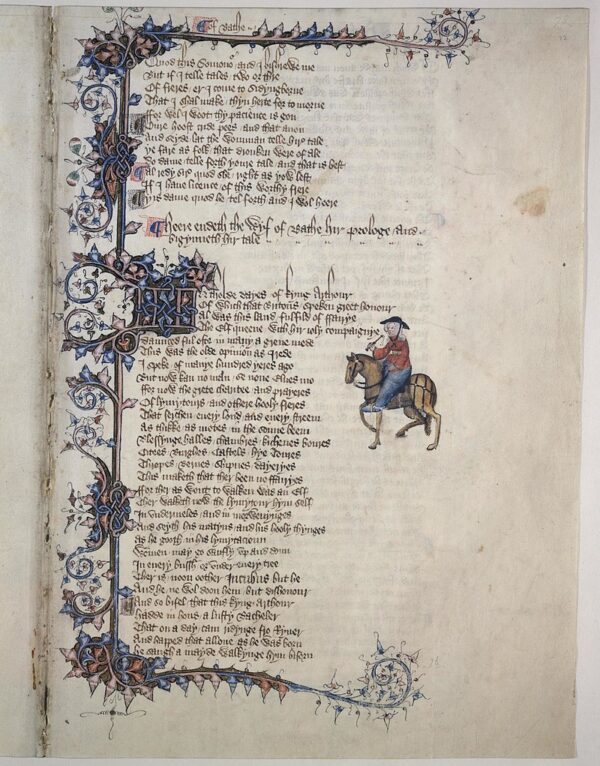 Of Bathe
Quod this Somono and I bishrewe me
But if I telle tales two or thre
Of freres er I come to Sidyngborne
That I shal make thyn herte for to morne
ffor wel I woot thy pacience is gon
Oure hoost cride pees and that anon
And seyde lat the womman telle hire tale
ye fare as folk that dronken were of ale
Do dame telle forth youre tale and that is best
Al redy sire quod she right as yow lest
If I haue licence of this worthy frere
yis dame quod he tel forth and I wol heere
Heere endeth the Wyf of Bathe hir prologe and
bigynneth hir tale
IN tholde dayes of kyng Arthour
Of which that Britons speken greet honour
Al was this land fulfild of ffairye
The Elf queene with hir ioly compaignye
Daunced ful ofte in many a grene mede
This was the olde opinion as I rede
I speke of manye hundred yeres ago
But now kan no man se none Elues mo
ffor now the grete charitee and prayeres
Of lymytours and othere hooly freres
That serchen euery lond and euery streem
As thikke as motes in the sonne beem
Blessynge halles chambres kichenes boures
Citees Burghes Castels hye Toures
Thropes Bernes Shipnes dayeryes
This maketh that ther been no ffairyes
ffor ther as wont to walken was an Elf
Ther walketh now the lymytour hym self
In vndermeles and in morwenynges
And seyth his matyns and his hooly thynges
As he gooth in his lymytacioun
Wommen may go saufly vp and doun
In euery bussh or vnder euery tree
Ther is noon oother Incubus but he
And he ne wol doon hem but dishonour
And so bifel that this kyng Arthour
Hadde in hous a lusty Bacheler
That on a day cam ridynge fro Ryuer
And happed that allone as he was born
He saugh a mayde walkynge hym biforn